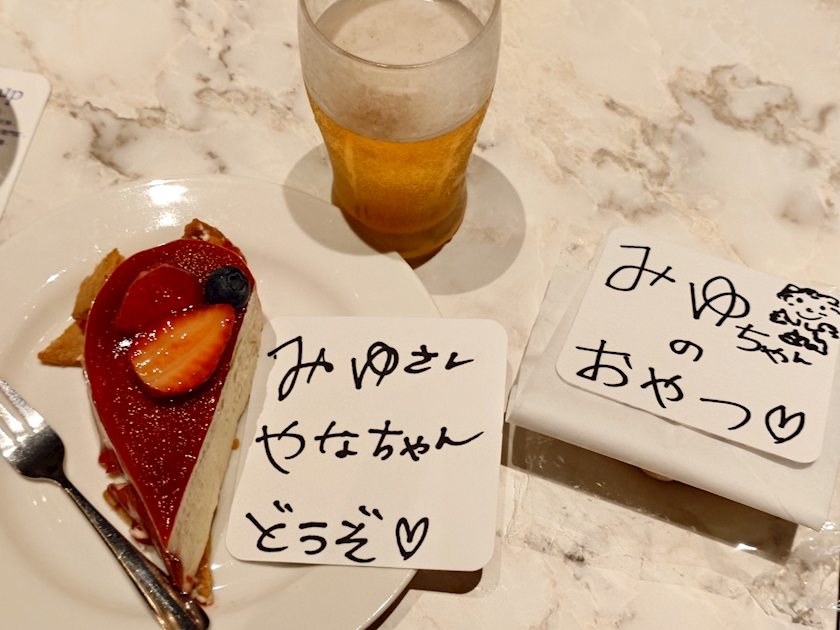 みゆさん
やなちゃん
どうぞ♡
みゆちゃん
の
おやつ♡